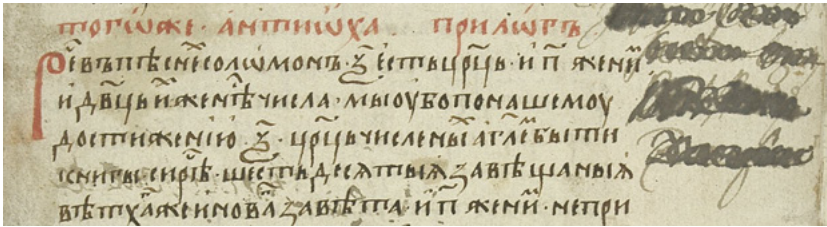 тогѡже · антиѡха прилѡгъ
Реⷱ въ пѣснеⷯ соломѡнъ · ѯ҃ · есть црⷰь · и п҃ женⷨи
и двⷰь иⷨже нѣⷭ числа · мы оубо по нашемоу
достижению ѯ҃ · црⷰь в численыⷯ аг҃леⷨ быти
книгы сирѣⷱ · шестьдесѧтыꙗ завѣщаныꙗ
вѣтхаⷢ же и новаⷢ завѣта · и п҃ женⷨи · непри